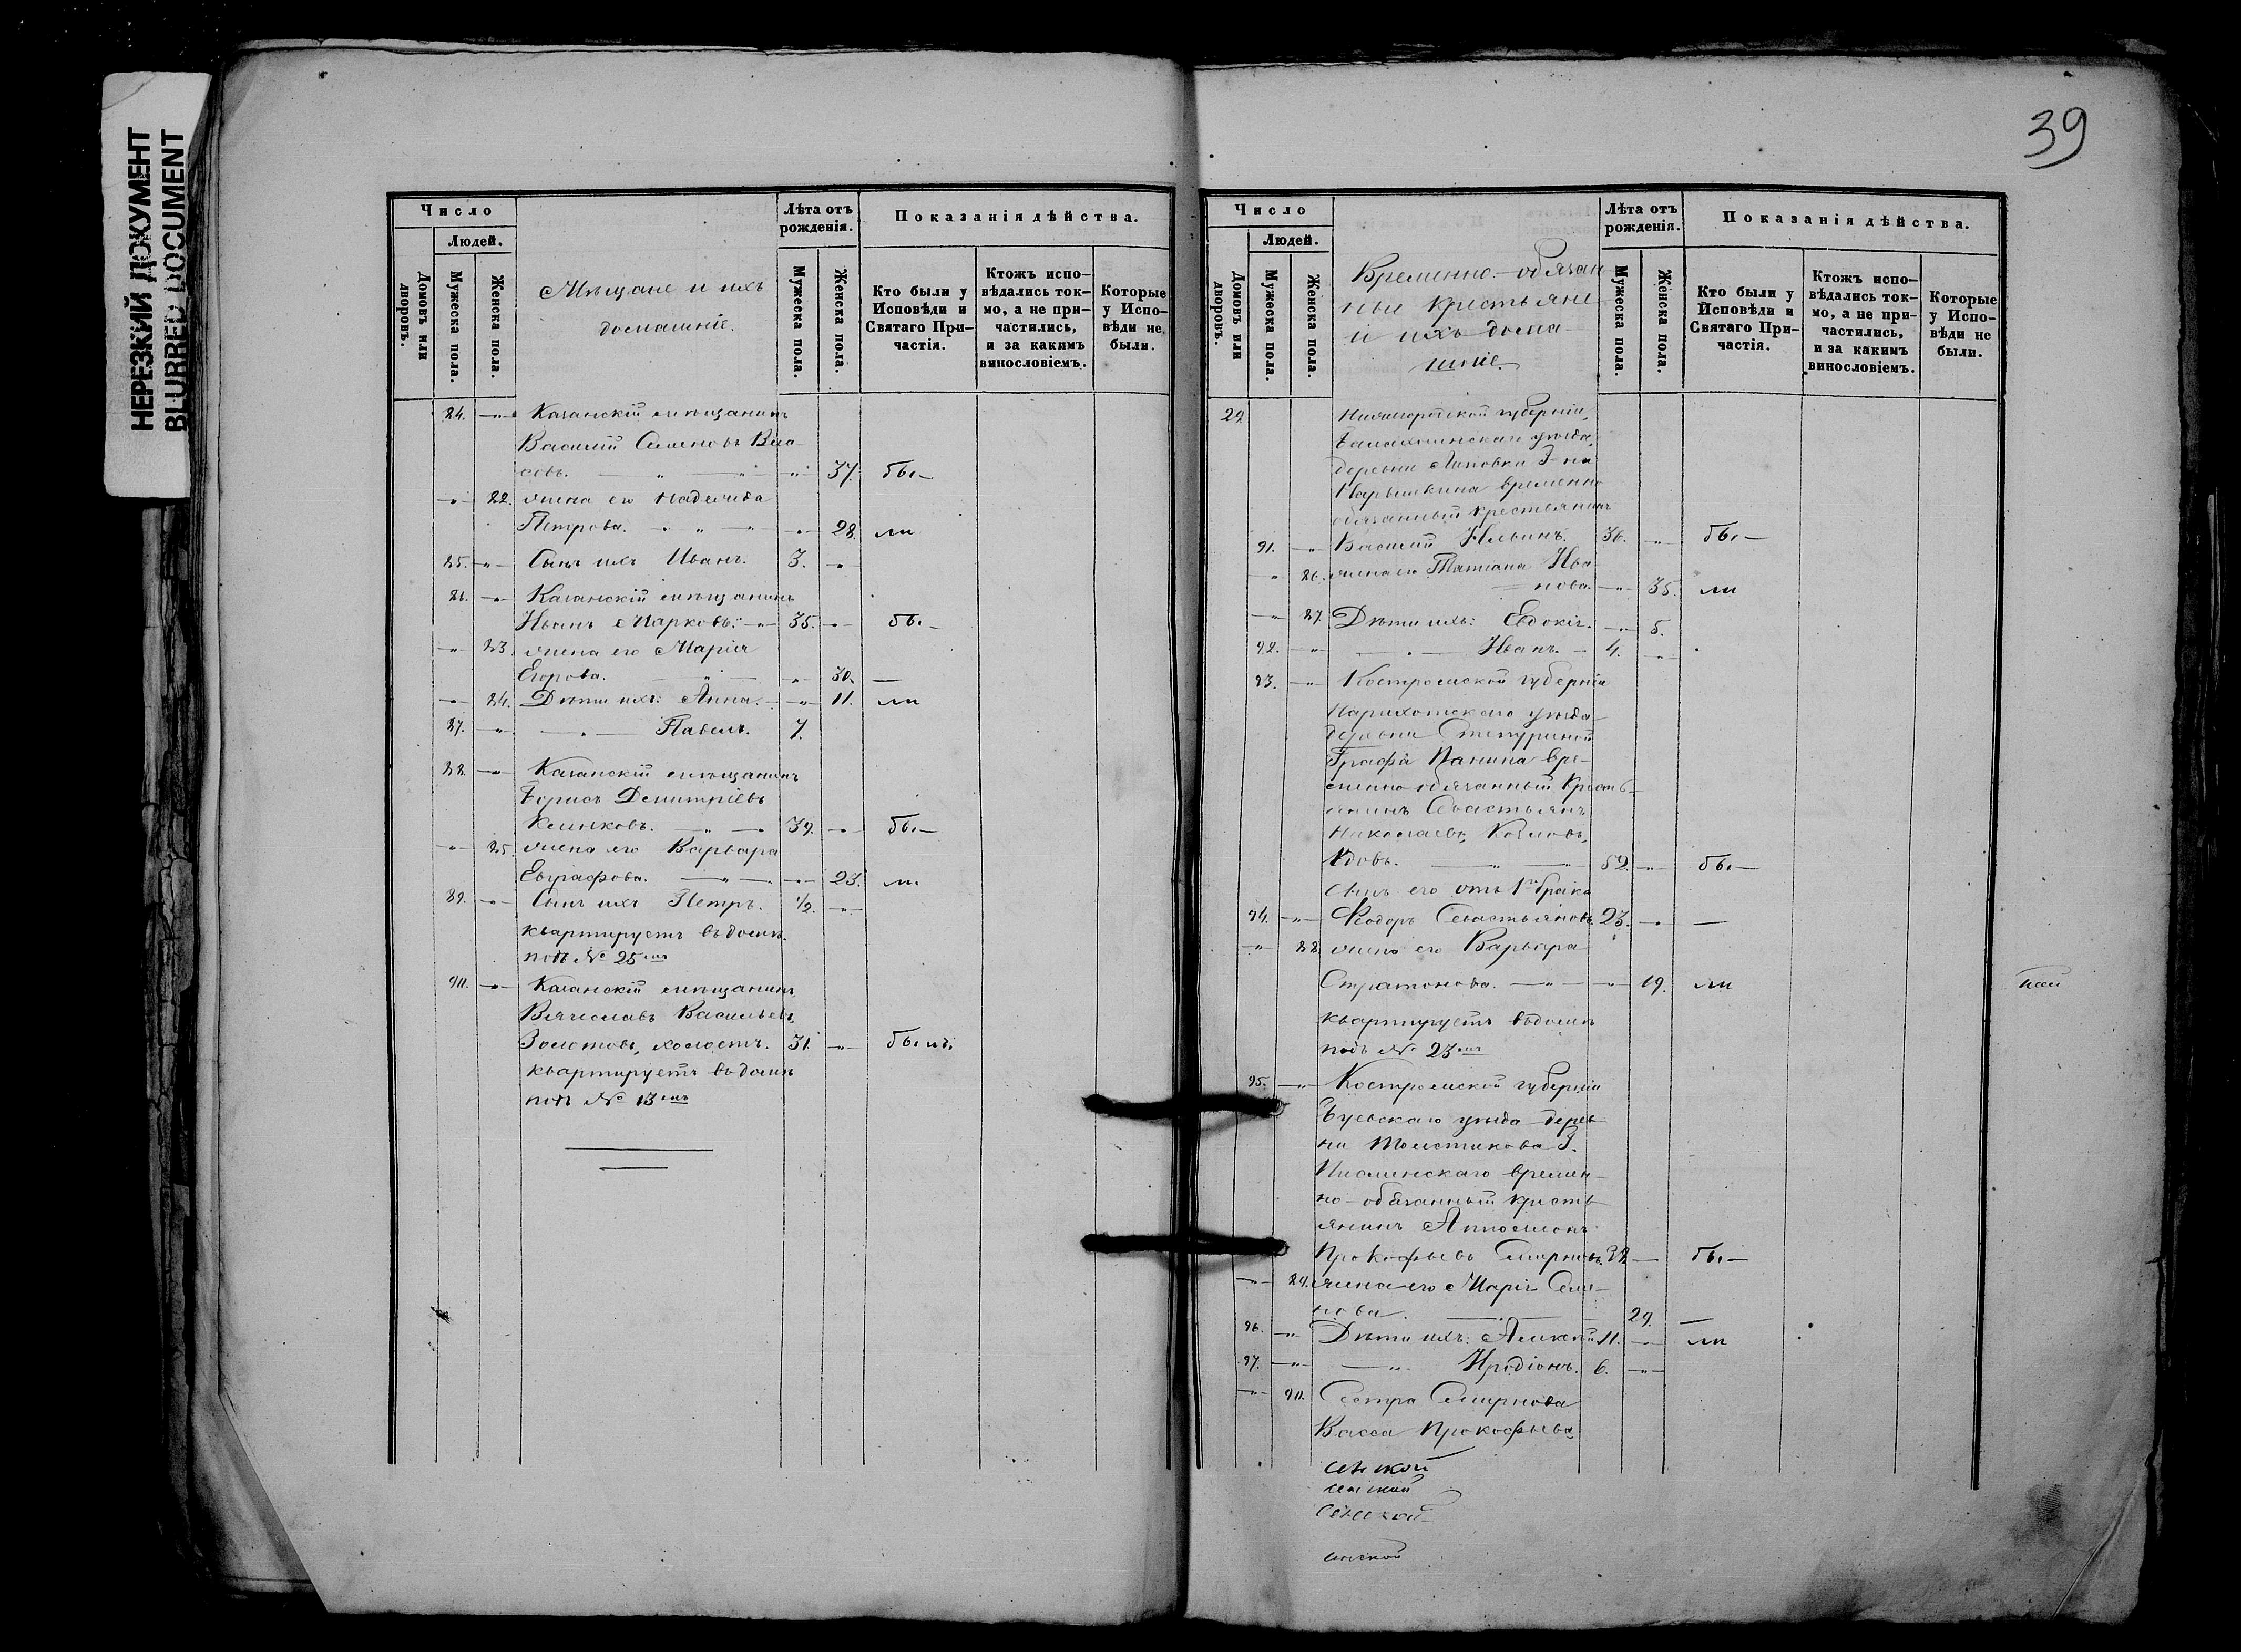 НЕРЕЗКИЙ ДОКУМЕНТ
BLURRED DOCUMENT
Число
Людей.
Домовъ или дворовъ.
Мужеска пола.
Женска пола.
Мѣщане и ихъ
домашніе.
Лѣта отъ рожденія.
Мужеска пола.
Женска пола.
Показанія дѣйства.
Кто были у Исповѣди и Святаго При-частія.
Ктожъ испо-вѣдались ток-мо, а не при-частились, и за какимъ винословіемъ.
Которые у Испо-вѣди не были.
84. —„— Казанскій мѣщанинъ
Василій Семеновъ Вла-
совъ. —„— —„— 37. бы—
—„— 82. жена его Надежда
Петрова. —„— —„— 28. ли
85. —„— Сынъ ихъ Иванъ. 3. —„—
86. —„— Казанскій мѣщанинъ
Иванъ Марковъ. —„— 35. —„— бы—
—„— 83. жена его Марія
Егорова. —„— —„— 30. —
—„— 84. Дѣти ихъ: Анна. —„— 11. ли
87. —„— —„— Павелъ. 7.
88. —„— Казанскій мѣщанинъ
Борисъ Димитріевъ
39. —„— бы—
—„— 85. жена его Варвара
Евграфова. —„— —„— 23. ли
89. —„— Сынъ ихъ Петръ. 1/2. —„—
квартируетъ въ домѣ
подъ № 25мъ
90. —„— Казанскій мѣщанинъ
Вячеславъ Васильевъ
Золотовъ, холостъ. 31. —„— былъ.
квартируетъ въ домѣ
подъ № 13мъ
39
Число
Людей.
Домовъ или дворовъ.
Мужеска пола.
Женска пола.
Временно-обязан-
ные крестьяне
и ихъ дома-
шніе.
Лѣта отъ рожденія.
Мужеска пола.
Женска пола.
Показанія дѣйства.
Кто были у Исповѣди и Святаго При-частія.
Ктожъ испо-вѣдались ток-мо, а не при-частились, и за какимъ винословіемъ.
Которые у Испо-вѣди не были.
29. Нижегородской губерніи,
Балахнинскаго уѣзда,
деревни Липовки Г-на
Нарышкина временно
обязанный крестьянинъ
91. —„— Василій Ильинъ. 36. —„— бы—
—„— 86. жена его Татіана Ива
нова. —„— 35. ли
—„— 87. Дѣти ихъ: Евдокія. —„— 5.
92. —„— —„— Иванъ. — 4. —„—
93. —„— Костромской губерніи
уѣзда
деревни
Графа Панина вре-
менно-обязанный кресть-
янинъ Севастьянъ
Николаевъ Козловъ,
вдовъ. —„— —„— 52. —„— бы—
сынъ его отъ 1го брака
94. —„— Ѳеодоръ Севастьяновъ. 23. —„— —
—„— 88. жена его Варвара
Стратонова. —„— —„— 19. ли
квартируетъ въ домѣ
подъ № 23мъ
95. —„— Костромской губерніи
Буевскаго уѣзда дерев-
ни Толстикова Г.
времен-
но-обязанный кресть-
янинъ
Прокофьевъ Смирновъ. 38. — бы—
—„— 89. жена его Марія Семе-
нова. —„— 29. —
96. —„— Дѣти ихъ: Алексѣй 11. —„— ли
97. —„— —„— Иродіонъ. 6. —„—
—„— 90. Сестра Смирнова
Васса Прокофьева